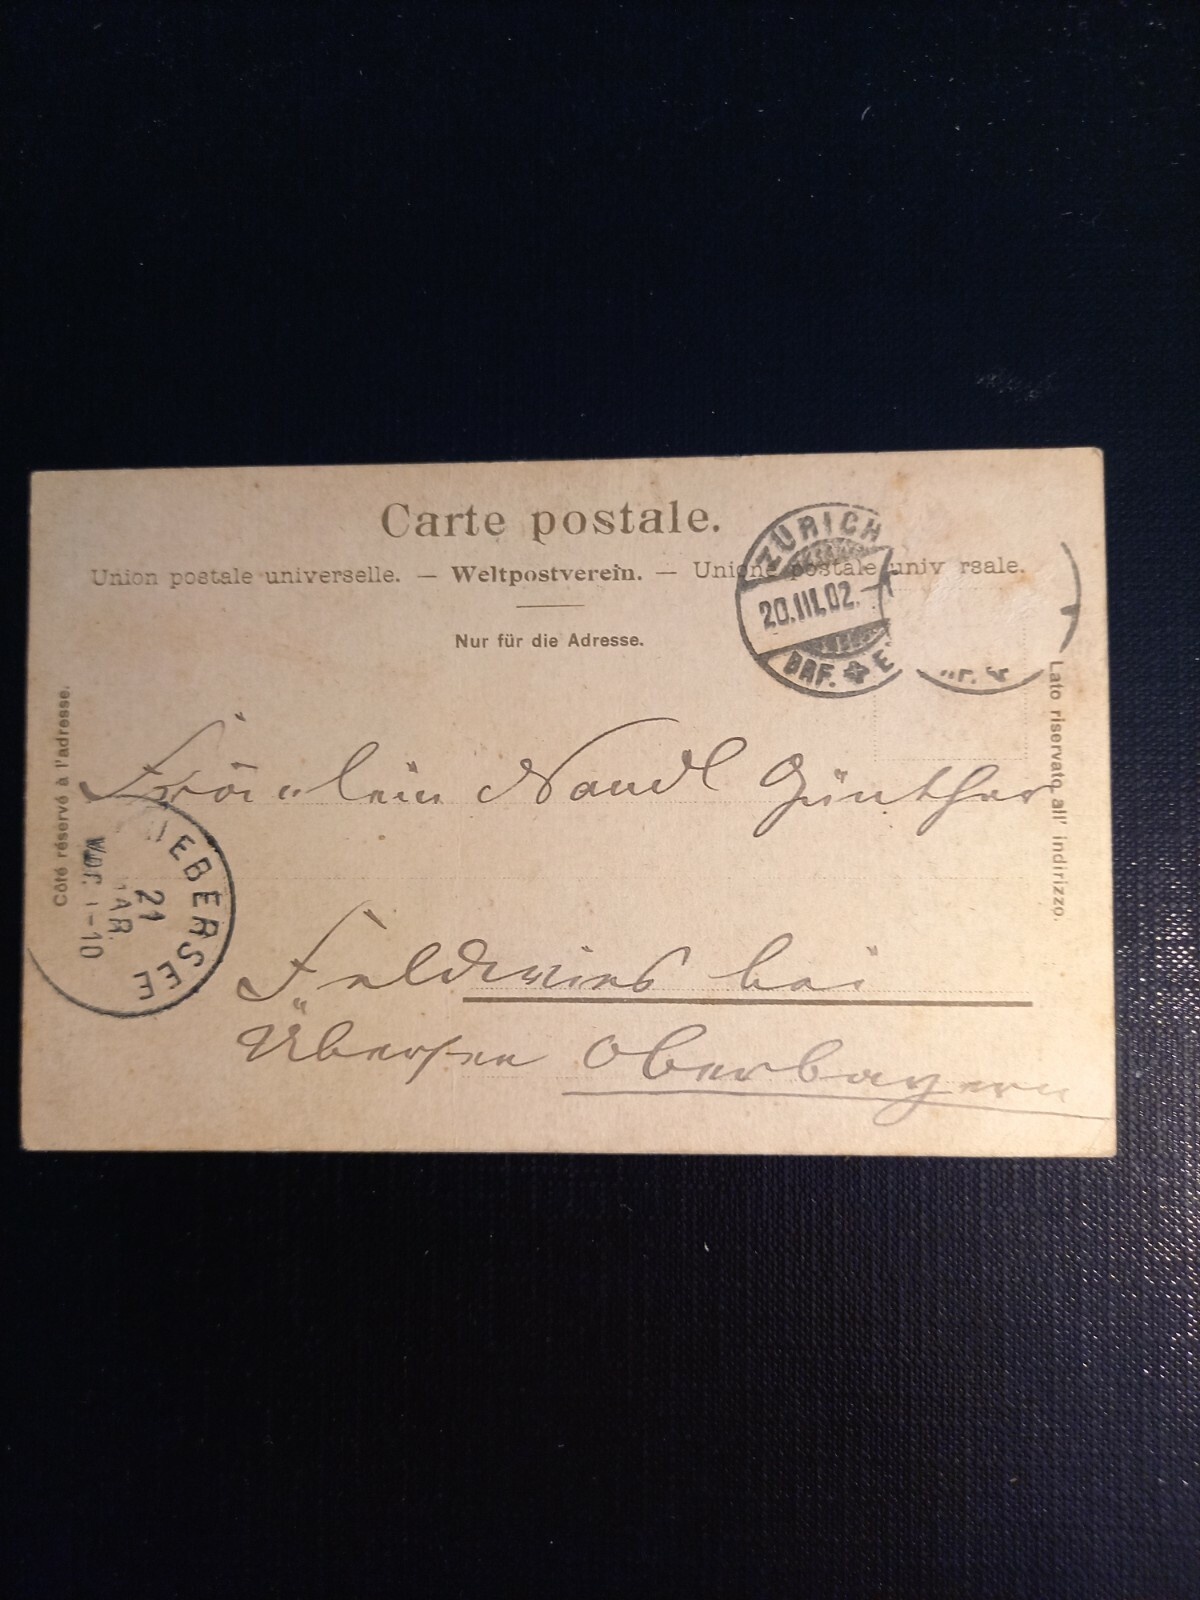 Carte postale.
Union postale universelle. — Weltpostverein. — Unione postale univ rsale.
Nur für die Adresse.
ZÜRICH
20.III.02.
BRF. E
Côté réservé à l'adresse.
Lato riservato all' indirizzo.
Fräulein Nandl Günther
UEBERSEE
21
MAR.
10
Feldwies bei
Übersee Oberbayern